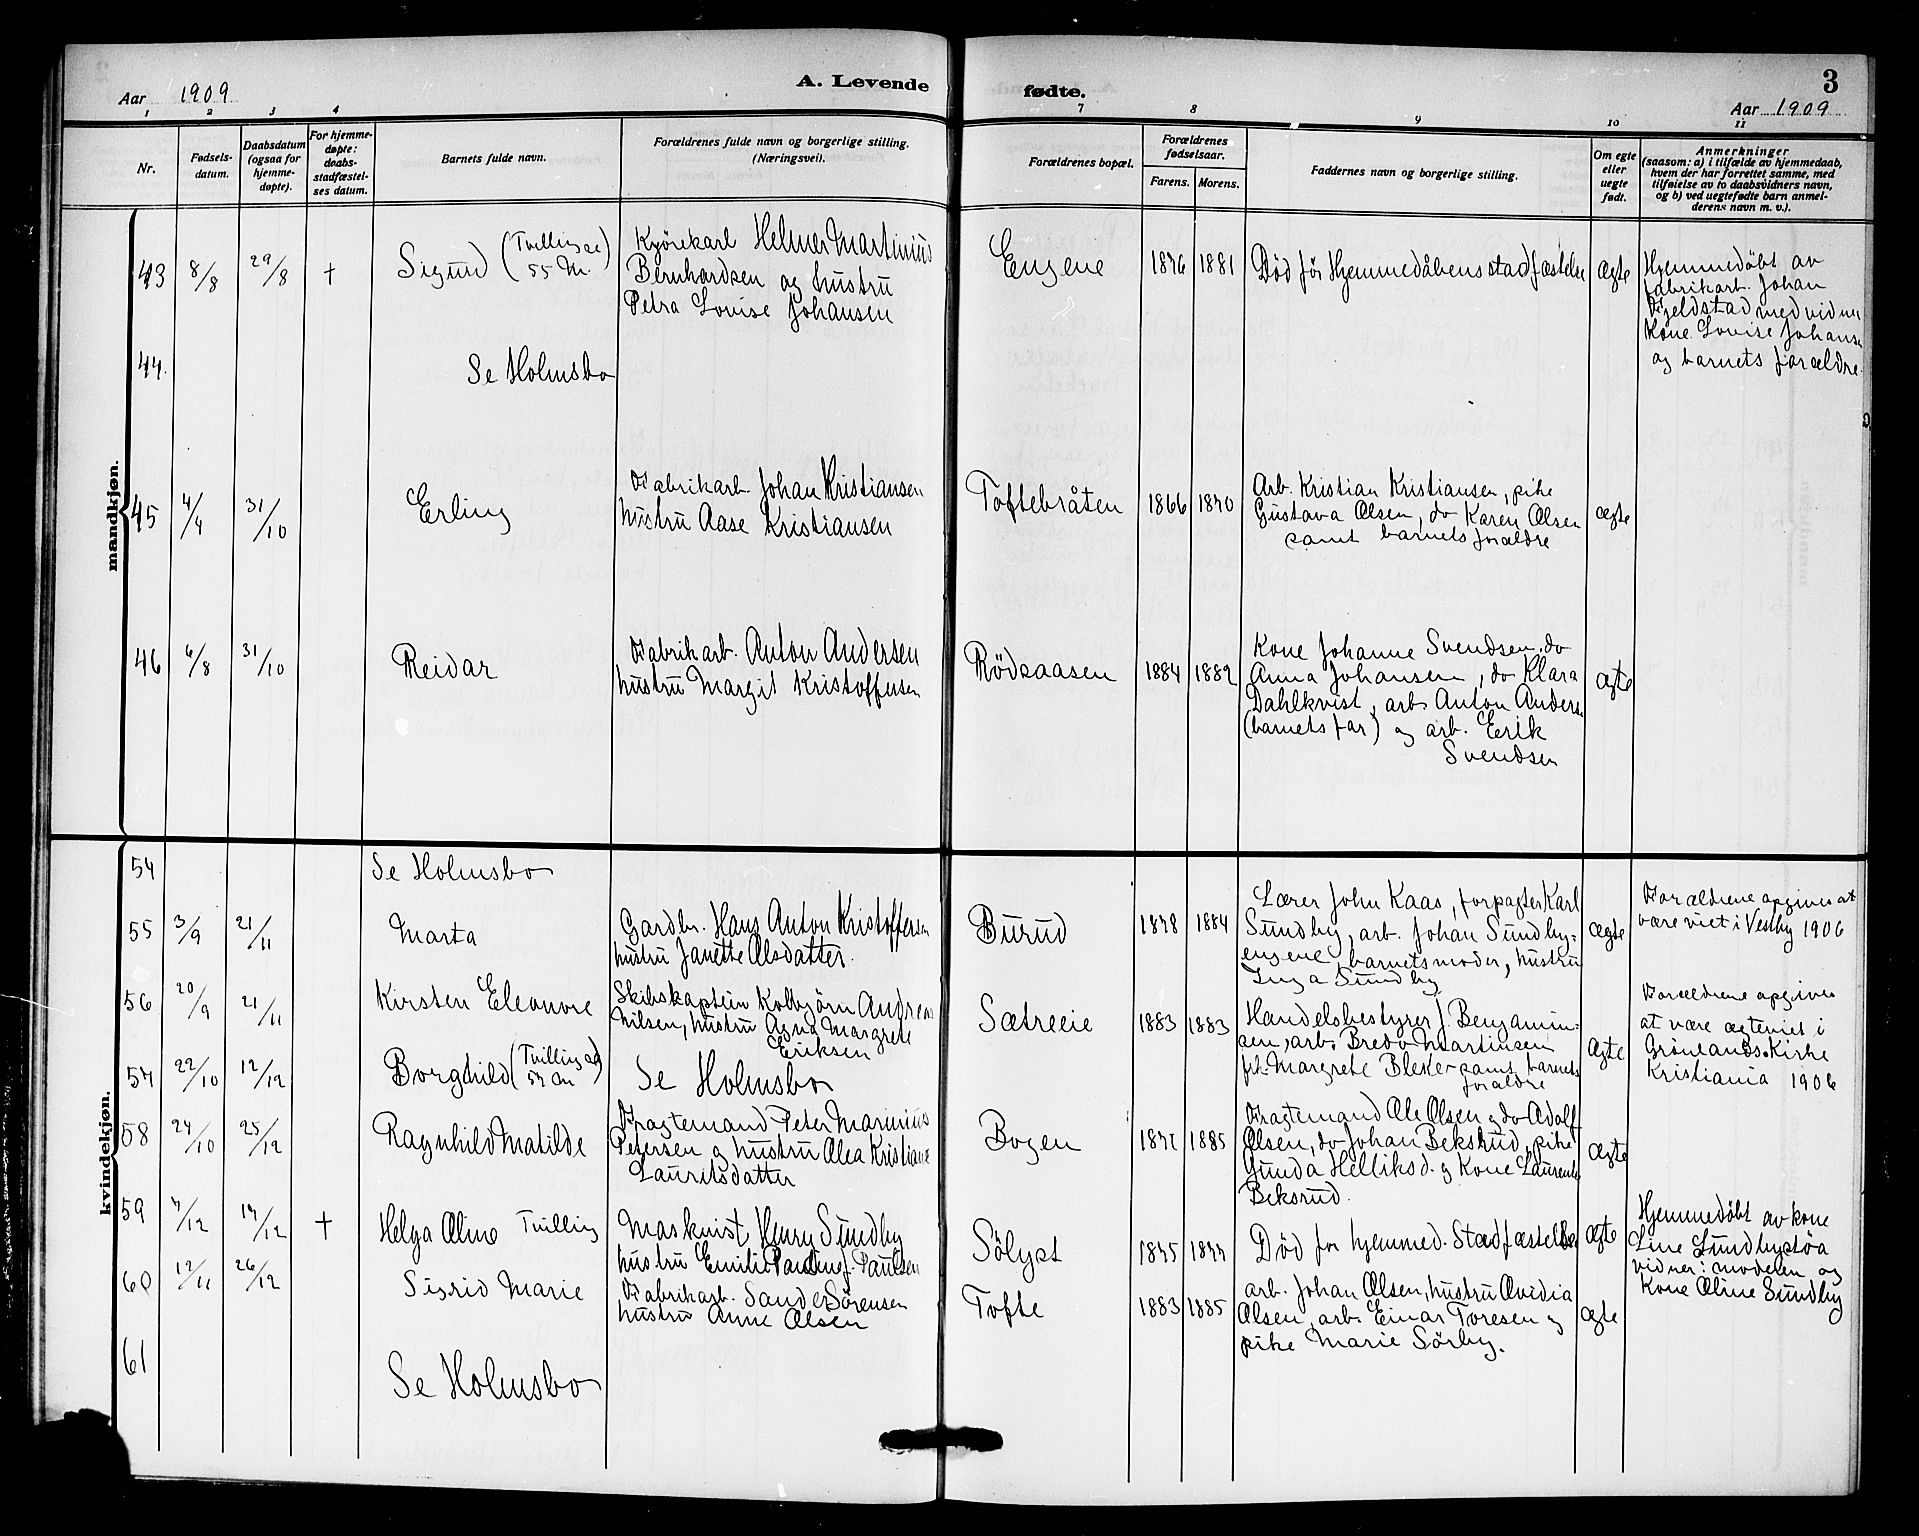 A. Levende
fødte.
3
Aar 1909
Aar 1909
1 2 3 4 7 8 9 10 11
Nr.
Fødsels-
datum.
Daabsdatum
(ogsaa for
hjemme-
døpte).
For hjemme-
døpte:
daabs-
stadfæstel-
ses datum.
Barnets fulde navn.
Forældrenes fulde navn og borgerlige stilling.
(Næringsvei).
Forældrenes bopæl.
Forældrenes
fødselsaar.
Farens. Morens.
Faddernes navn og borgerlige stilling.
Om egte
eller
uegte
født.
Anmerkninger
(saasom: a) i tilfælde av hjemmedaab,
hvem der har forrettet samme, med
tilføielse av to daabsvidners navn,
og b) ved uegtefødte barn anmel-
derens navn m. v.).
mandkjøn.
43 8/8 29/8 † Sigurd (Tvilling se
55 M.
Kjørekarl Helmer Martinius
Bernhardsen og hustru
Petra Lovise Johansen
Engene 1876 1881 Død før Hjemmedåbens stadfæstelse ægte
Hjemmedøbt av
fabrikarb. Johan
Fjeldstad med vidne
Kone Lovise Johansen
og barnets forældre.
44. Se Holmsbo
45 4/4 31/10 Erling
Fabrikarb. Johan Kristiansen
hustru Aase Kristiansen
Toftebråten 1866 1870
Arb. Kristian Kristiansen, pike
Gustava Olsen, do Karen Olsen
samt barnets forældre
ægte
46 6/8 31/10 Reidar
Fabrikarb. Anton Andersen
hustru Margit Kristoffersen
Rødsaasen 1884 1882
Kone Johanne Svendsen, do
Anna Johansen, do Klara
Dahlkvist, arb. Anton Anders
(barnets far) og arb. Erik
Svendsen
ægte
kvindekjøn.
54 Se Holmsbo
55 3/9 21/11 Marta
Gardbr. Hans Anton Kristoffersen
hustru Janette Olsdatter.
Burud 1878 1884
Lærer John Kaas, forpagter Karl
Sundby, arb. Johan Sundby-
engene, barnets moder, hustru
Inga Sundby
ægte
Forældrene opgives at
være viet i Vestby 1906
56 20/9 21/11 Kirsten Eleonore
Skibskaptein Kolbjørn Andreas
Nilsen, hustru Agna Margrete
Eriksen
Sætreeie 1883 1883
Handelsbestyrer J. Benjamin-
sen, arb. Bredo Martinsen
frk. Margrete Bleker samt barnets
forældre
ægte
Forældrene opgives
at være ægteviet i
Grønlands Kirke
Kristiania 1906
57 22/10 12/12 Borghild (Tvilling se
57 m)
Se Holmsbo
58 24/10 25/12 Ragnhild Matilde
Fragtemand Peter Marinius
Petersen og hustru Olea Kristiane
Lauritsdatter
Bogen 1871 1885
Fragtemand Ole Olsen og do Adolf
Olsen, do Johan Beksrud, pike
Gunda Helliksd. og Kone Laurentse
Beksrud.
ægte
59 7/12 17/12 † Helga Oline Tvilling
Maskinist Henry Sundby
hustru Emilie Pauline f. Paulsen
Sølyst 1875 1877 Død for hjemmed. Stadfæstelse ægte
Hjemmedøbt av kone
Line Sundbystøa
vidner: moderen og
Kone Oline Sundby
60 12/11 26/12 Sigrid Marie
Fabrikarb. Sander Sørensen
hustru Anne Olsen
Tofte 1883 1885
arb. Johan Olsen, hustru Ovidia
Olsen, arb. Einar Toresen og
pike Marie Sørby.
ægte
61 Se Holmsbo